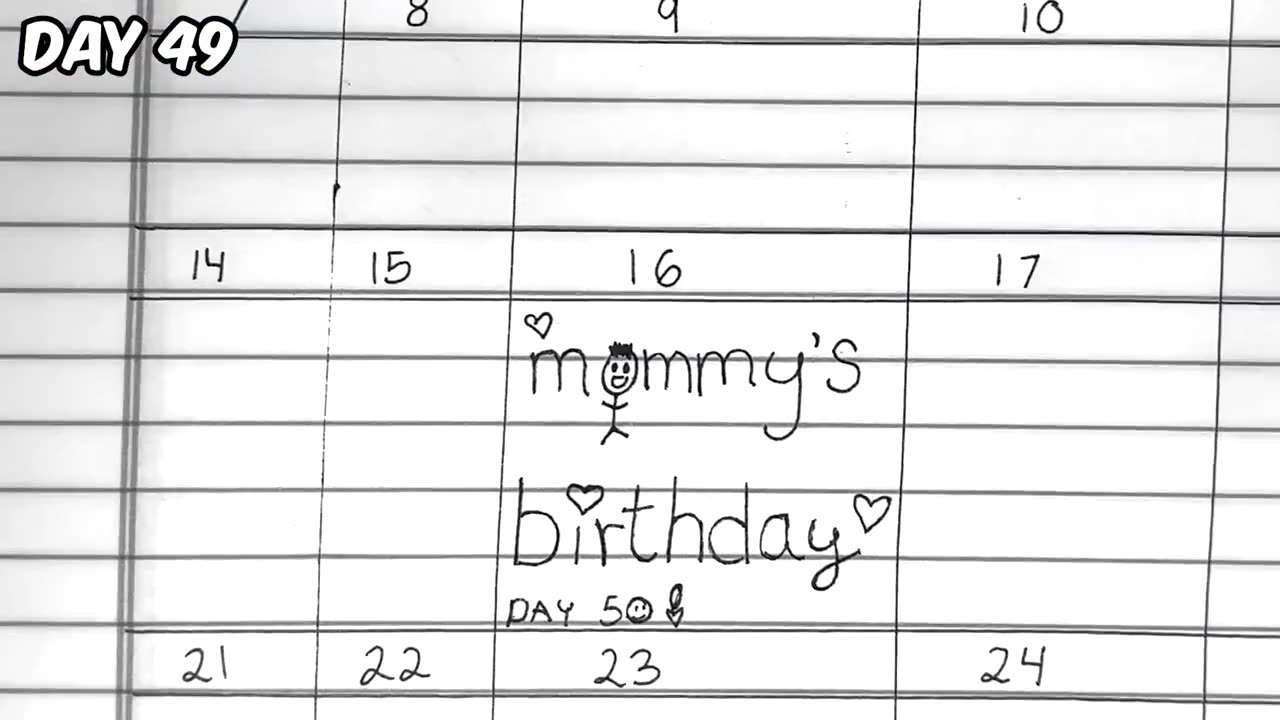 DAY 49
8 9 10
14 15 16 17
mommy's
birthday
DAY 50
21 22 23 24